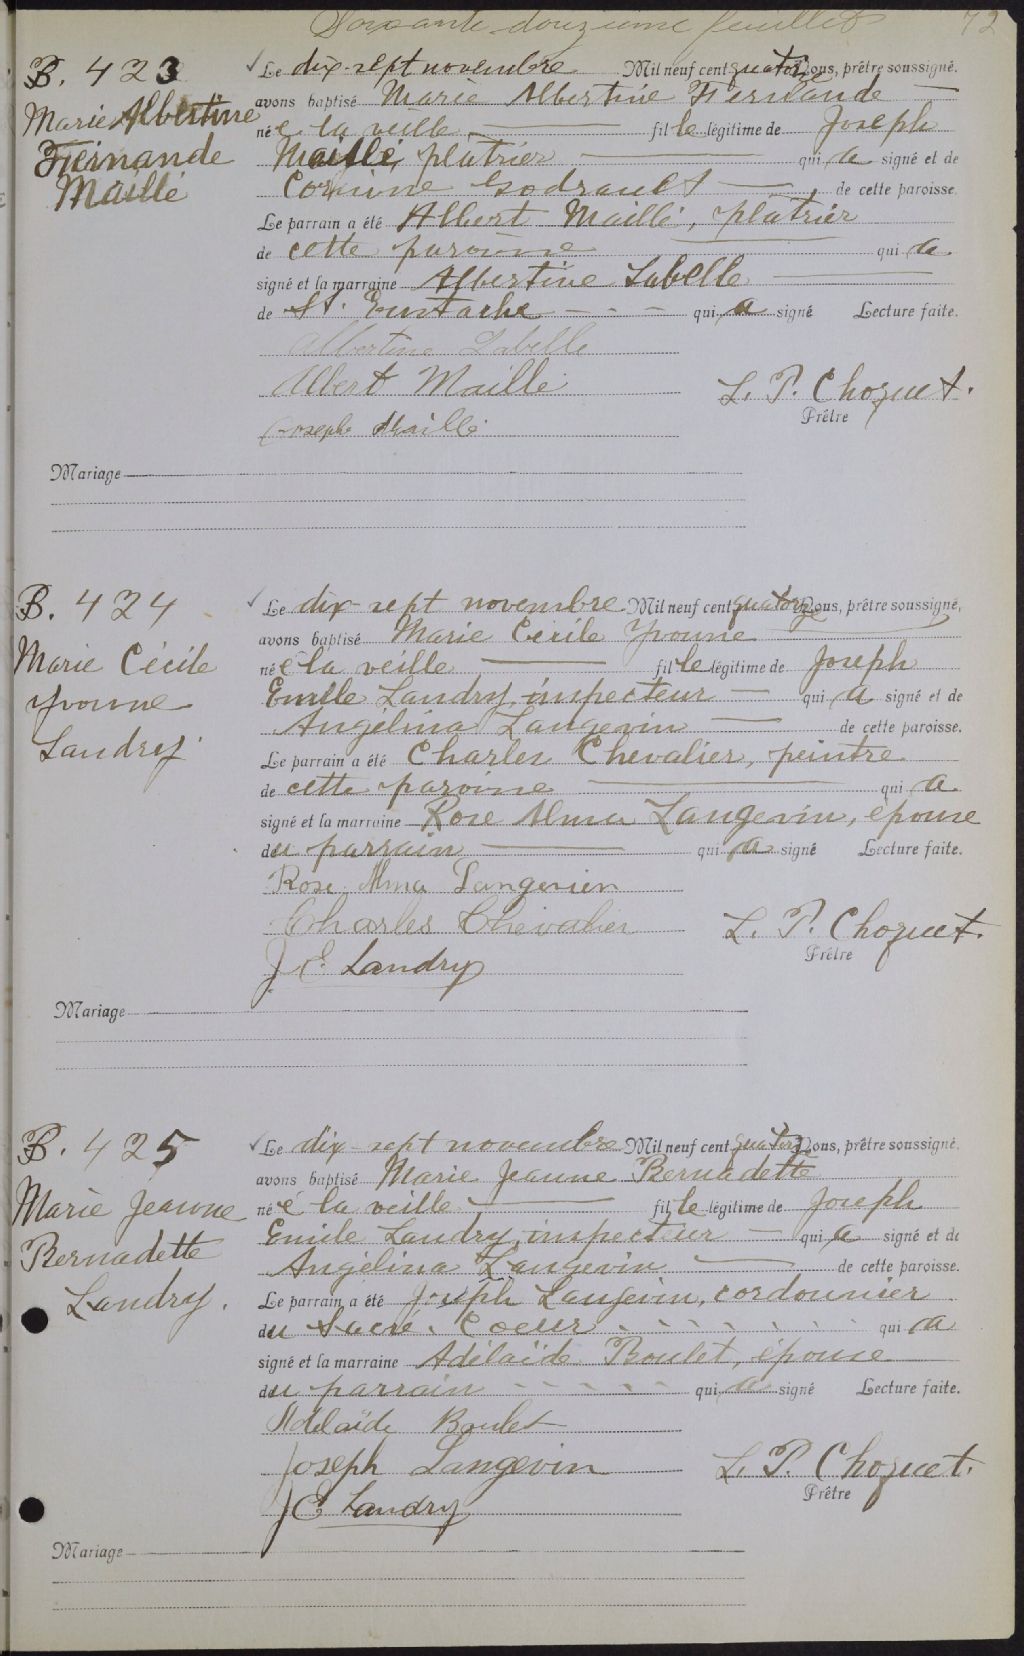 Soixante douzième feuillet 72
B. 423
Marie Albertine
Fernande
Maillé
Le dix-sept novembre Mil neuf cent quatorze, Nous, prêtre soussigné,
avons baptisé Marie Albertine Fernande
née la veille fille légitime de Joseph
Maillé, plâtrier qui a signé et de
Corinne Godrault de cette paroisse.
Le parrain a été Albert Maillé, plâtrier
de cette paroisse qui a
signé et la marraine Albertine Labelle
de St. Eustache qui a signé Lecture faite.
Albertine Labelle
Albert Maillé
Joseph Maillé
L. P. Choquet.
Prêtre
Mariage
B. 424
Marie Cécile
Yvonne
Landry.
Le dix-sept novembre Mil neuf cent quatorze Nous, prêtre soussigné,
avons baptisé Marie Cécile Yvonne
née la veille fille légitime de Joseph
Emile Landry, inspecteur qui a signé et de
Angélina Langevin de cette paroisse.
Le parrain a été Charles Chevalier, peintre
de cette paroisse qui a
signé et la marraine Rose Alma Langevin, épouse
du parrain qui a signé Lecture faite.
Rose Alma Langevien
Charles Chevalier
J E Landry
L. P. Choquet.
Prêtre
Mariage
B. 425
Marie Jeanne
Bernadette
Landry.
Le dix-sept novembre Mil neuf cent quatorze Nous, prêtre soussigné,
avons baptisé Marie Jeanne Bernadette
née la veille fille légitime de Joseph
Emile Landry, inspecteur qui a signé et de
Angélina Langevin de cette paroisse.
Le parrain a été Joseph Langevin, cordonnier
du Sacré-Coeur qui a
signé et la marraine Adélaïde Boulet, épouse
du parrain qui a signé Lecture faite.
Adelaïde Boulet
Joseph Langevin
J E Landry
L. P. Choquet.
Prêtre
Mariage